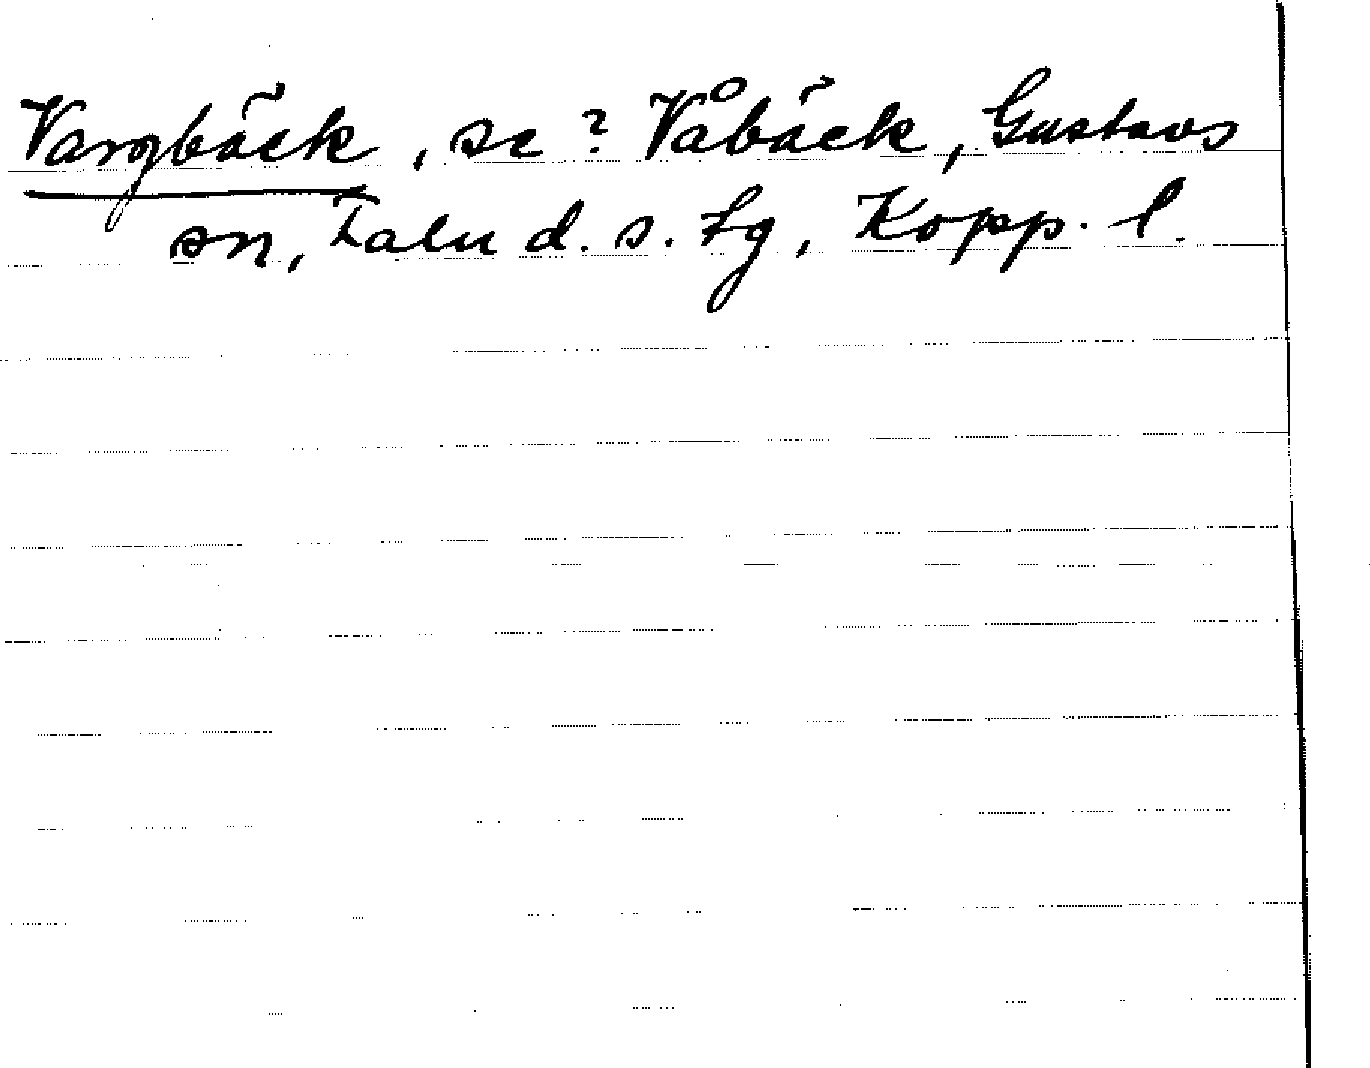 Vargbäck, se? Våbäck, Gustavs
sn, Falu d. s. tg, Kopp. l.